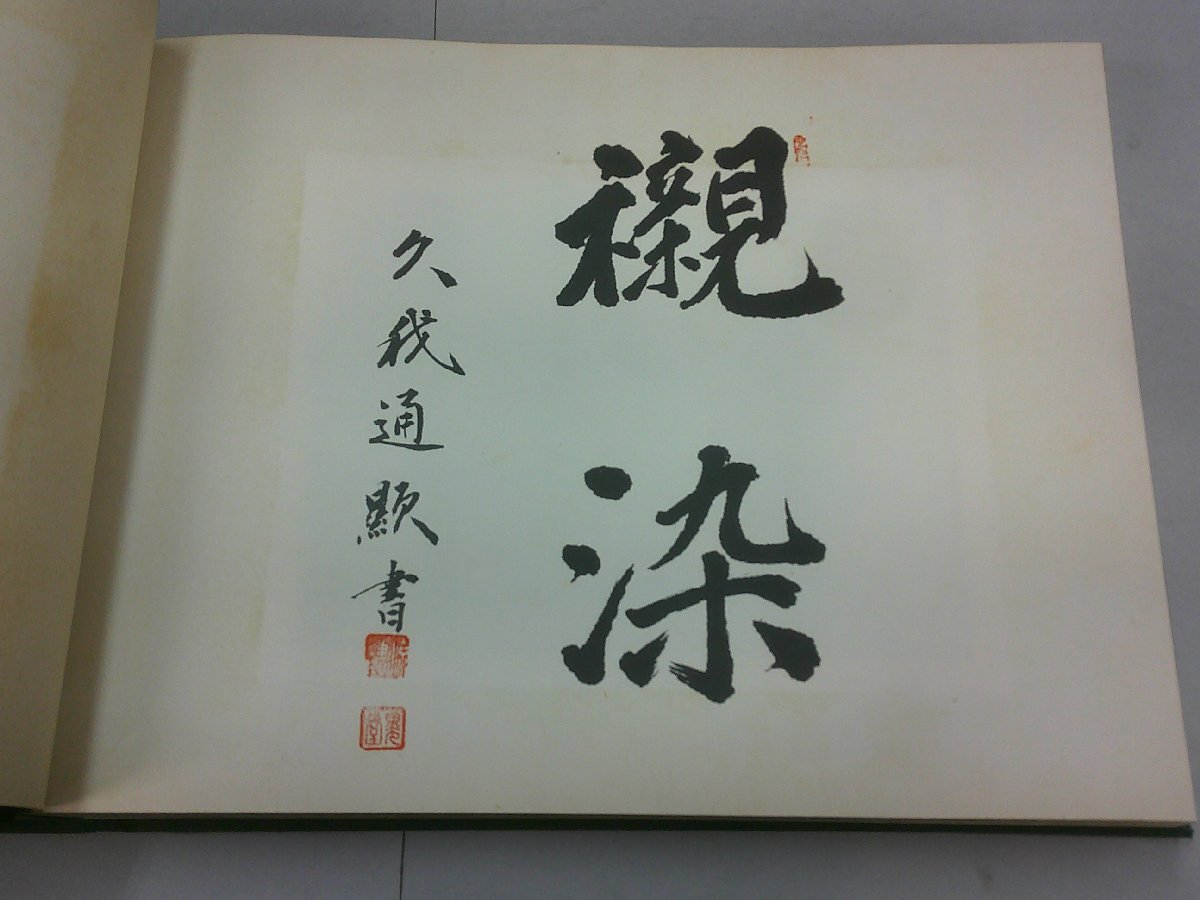 襯染
久我通顯書